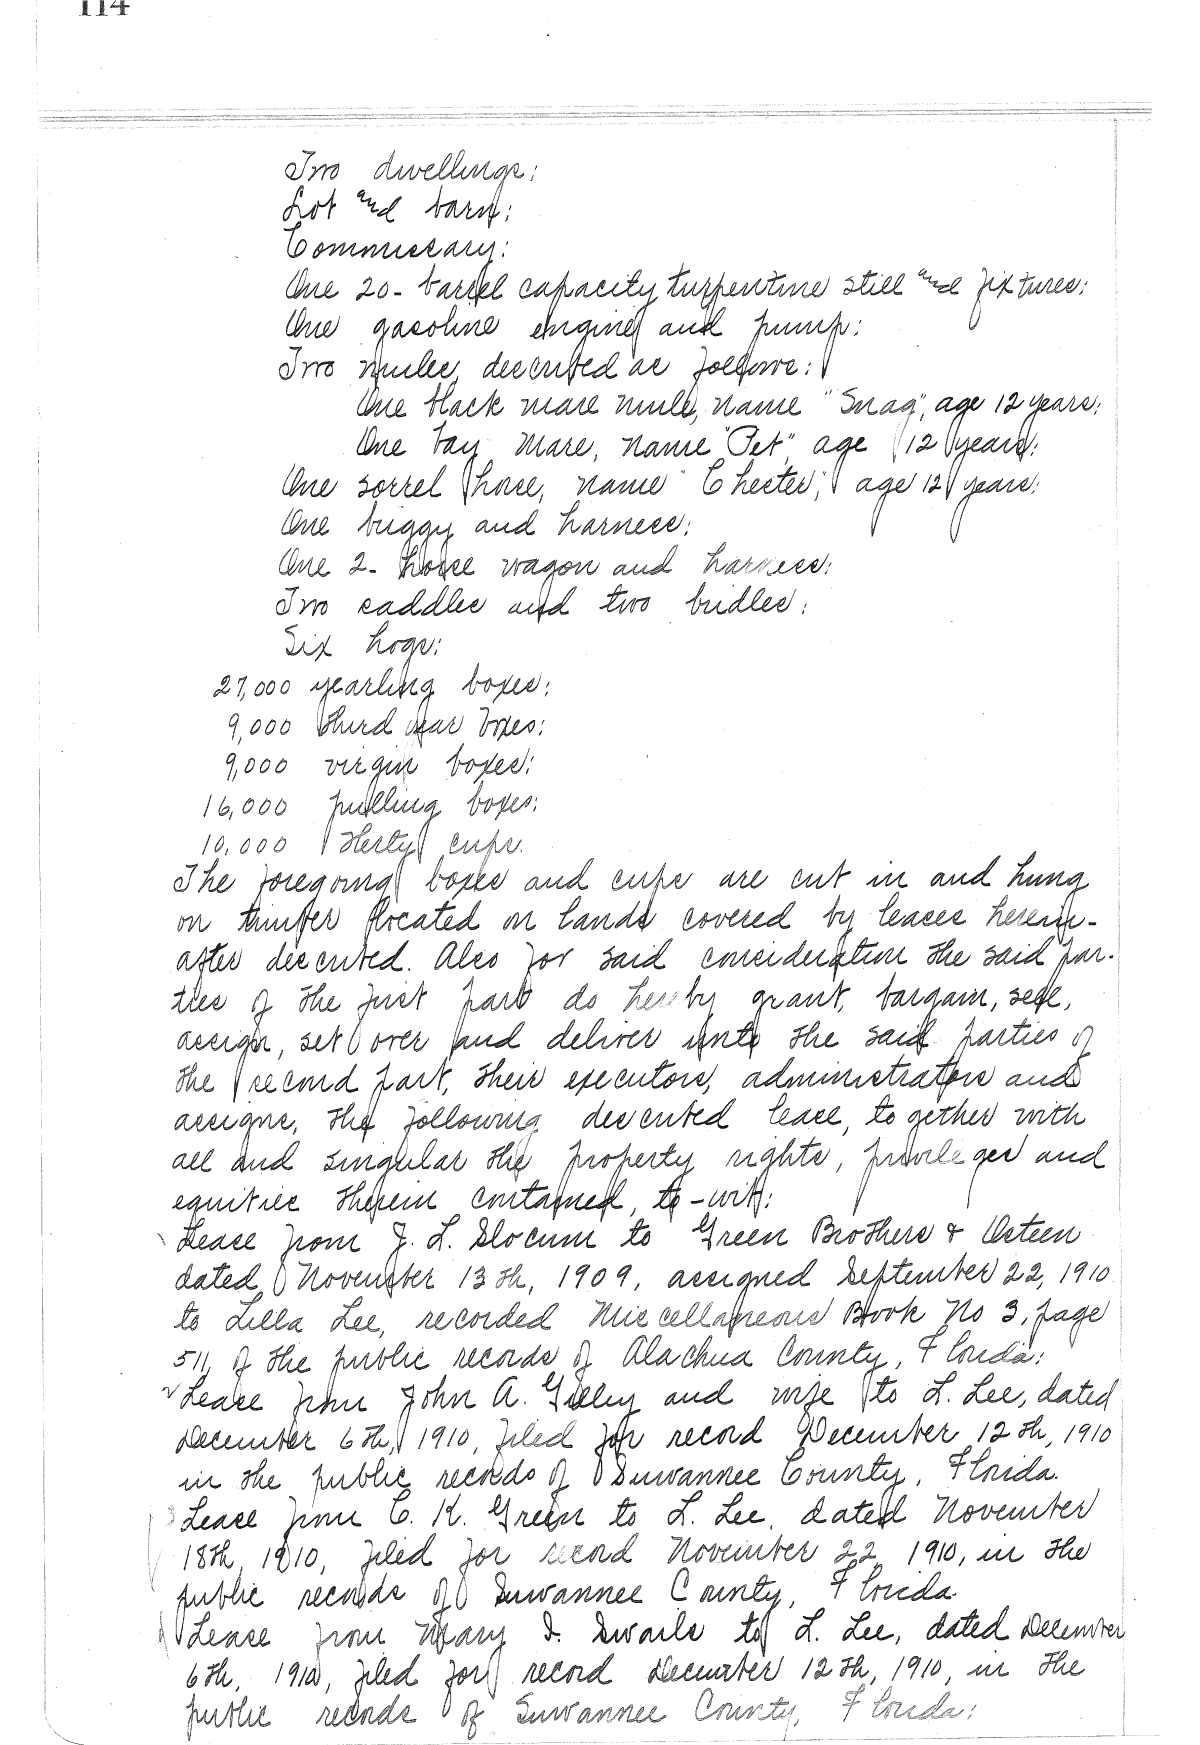 114
Two dwellings;
Lot and barn;
Commissary;
One 20-barrel capacity turpentine still and fixtures;
One gasoline engine and pump;
Two mules, described as follows:
One black mare mule, name "Snag", age 12 years;
One bay mare, name "Pet", age 12 years;
One sorrel horse, name "Chester," age 12 years;
One buggy and harness;
One 2-horse wagon and harness;
Two saddles and two bridles;
Six hogs;
27,000 yearling boxes;
9,000 third year boxes;
9,000 virgin boxes;
16,000 pulling boxes;
10,000 Herty cups.
The foregoing boxes and cups are cut in and hung
on timber located on lands covered by leases herein-
after described. Also for said consideration the said par-
ties of the first part do hereby grant, bargain, sell,
assign, set over and deliver unto the said parties of
the second part, their executors, administrators and
assigns, the following described lease, together with
all and singular the property rights, privileges and
equities therein contained, to-wit:
Lease from J. L. Slocum to Green Brothers & Osteen
dated November 13th, 1909, assigned September 22, 1910
to Lilla Lee, recorded Miscellaneous Book No 3, page
511, of the public records of Alachua County, Florida;
Lease from John A. Gilley and wife to L. Lee, dated
December 6th, 1910, filed for record December 12th, 1910
in the public records of Suwannee County, Florida.
Lease from C. K. Green to L. Lee, dated November
18th, 1910, filed for record November 22, 1910, in the
public records of Suwannee County, Florida.
Lease from Mary I. Swails to L. Lee, dated December
6th, 1910, filed for record December 12th, 1910, in the
public records of Suwannee County, Florida;